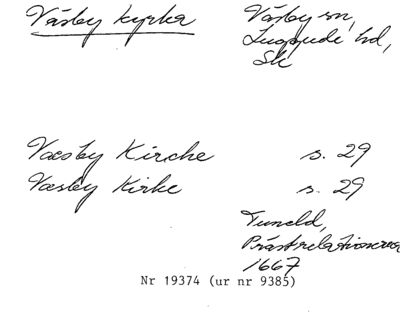 Väsby kyrka
Väsby sn,
Luggude hd,
Sk
Væsby Kirche s. 29
Væsby Kirke s. 29
Tuneld,
Prästrelationerna
1667
Nr 19374 (ur nr 9385)